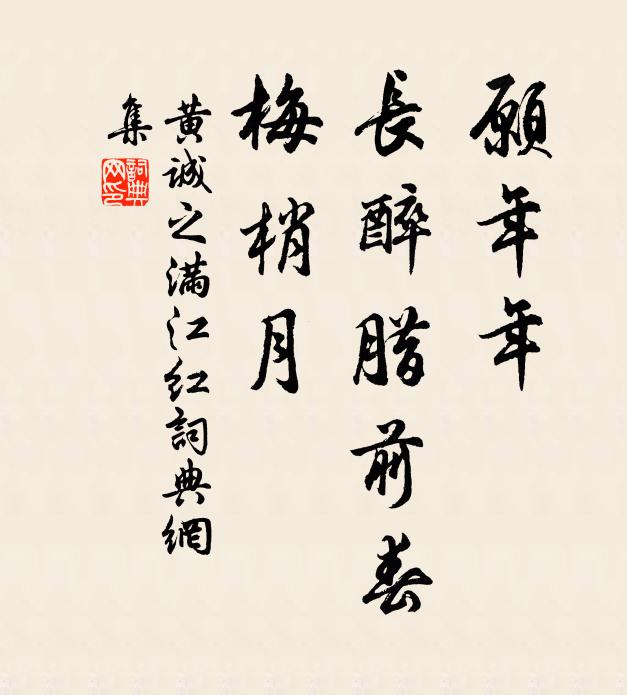 願年年
長醉腊前春
梅梢月
黄誠之滿江红詞典網
集
詞典
网印